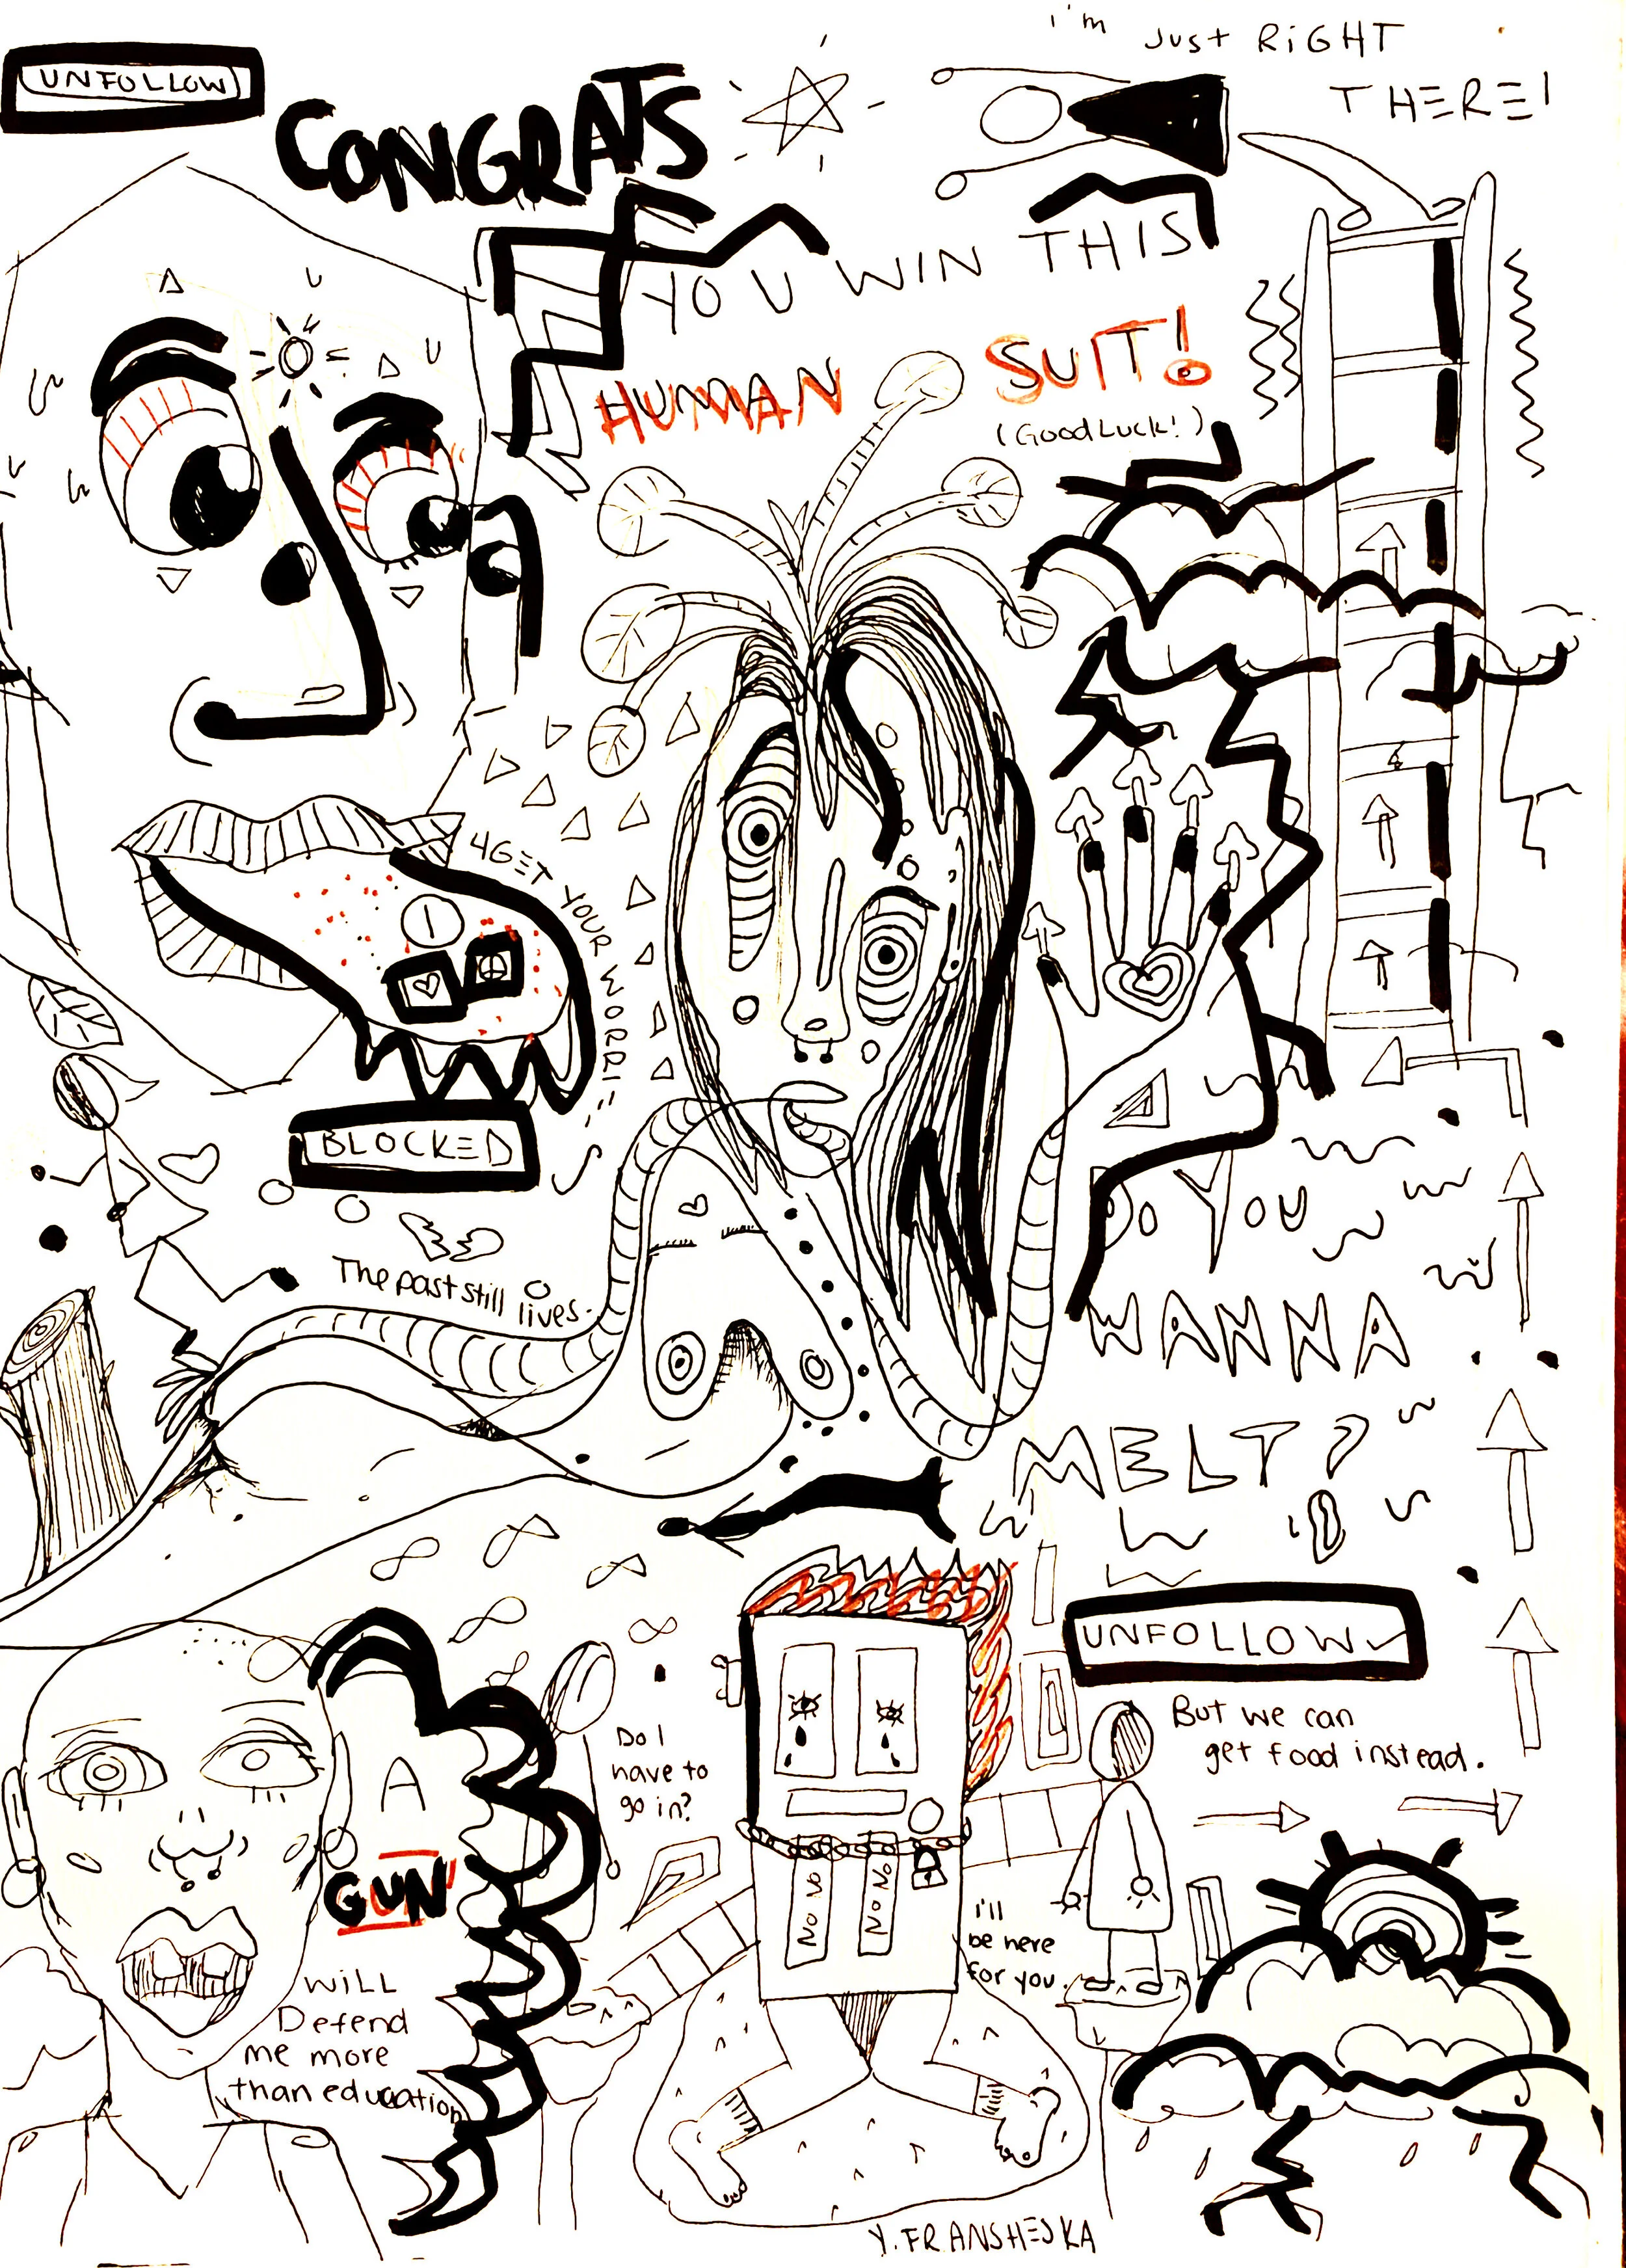 i'm just RiGHT
THERE!
UNFOLLOW
CONGRATS
YOU WIN THIS
HUMAN SUIT!
(GOOD LUCK!)
4GET YOUR WORRIES
BLOCKED
The past still lives.
DO YOU
WANNA
MELT?
UNFOLLOW
But we can
get food instead.
Do I
have to
go in?
NO NO
NO NO
i'll
be here
for you.
A
GUN
WiLL
Defend
me more
than education
Y. FRANSHESKA